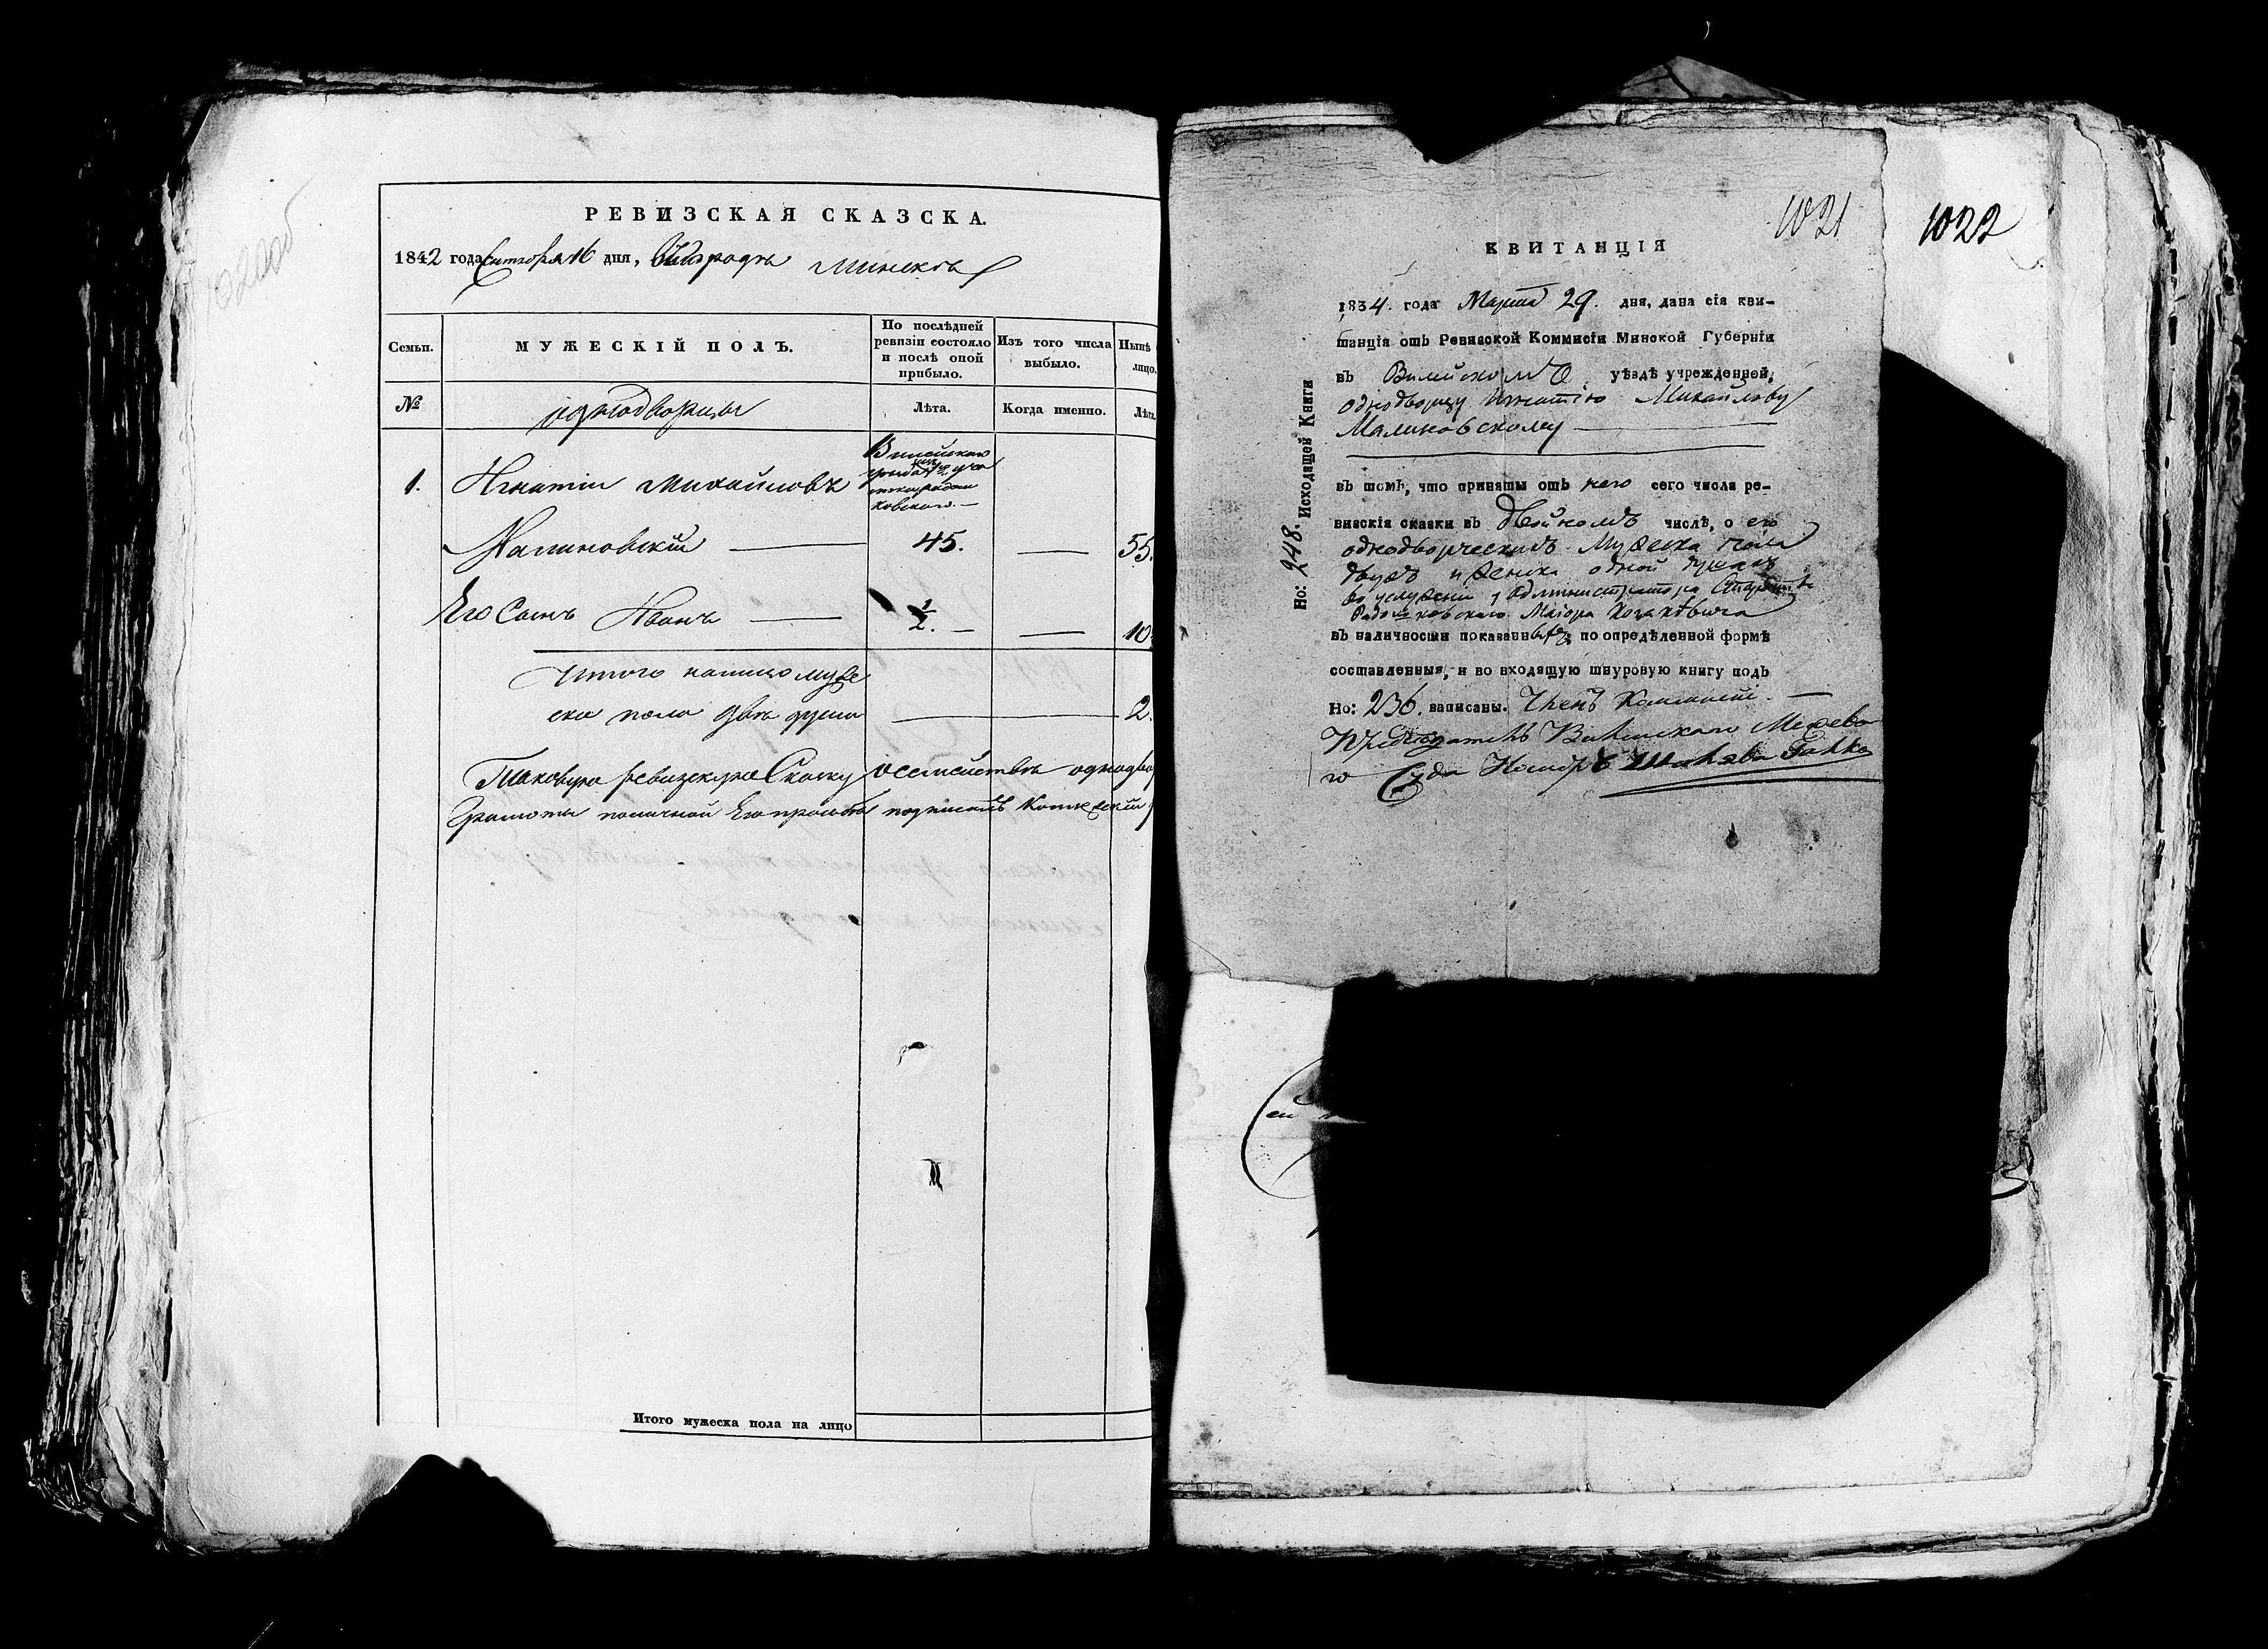 РЕВИЗСКАЯ СКАЗСКА.
1842 года Сентября 16 дня, Въ Городѣ Минскѣ
Семьи.
МУЖЕСКІЙ ПОЛЪ.
По послѣдней
ревизіи состояло
и послѣ оной
прибыло.
Изъ того числа
выбыло.
Нынѣ
лицо.
№
однодворцы
Лѣта.
Когда именно.
Лѣта
1.
Игнатій Михайловъ
Вилейскаго
Малиновскій
45.
55.
Его Сынъ Иванъ
1/2.
10
Итого налицо муже
ска пола двѣ души
2.
Таковую ревизскую Скаску о семействѣ однодво
Грамоты по личной Его прозьбѣ подписалъ
Итого мужеска пола на лицо
1021
1022
КВИТАНЦІЯ
1834. года Марта 29. дня, дана сія кви-
танція отъ Ревизской Коммисіи Минской Губерніи
въ Вилейскомъ уѣздѣ учрежденной,
однодворцу Игнатію Михайлову
Малиновскому
въ томъ, что приняты отъ него сего числа ре-
визскія сказки въ двойномъ числѣ, о его
однодворческихъ Мужеска пола
двухъ и женска одной душахъ
въ услуженіи у Администратора
Маіора
въ наличности показанныхъ по опредѣленной формѣ
составленныя, и во входящую шнуровую книгу подъ
Но: 236. записаны. Членъ Коммисіи
Предсѣдатель Вилейскаго Межева
го Суда
Но: 248. Исходящей Книги